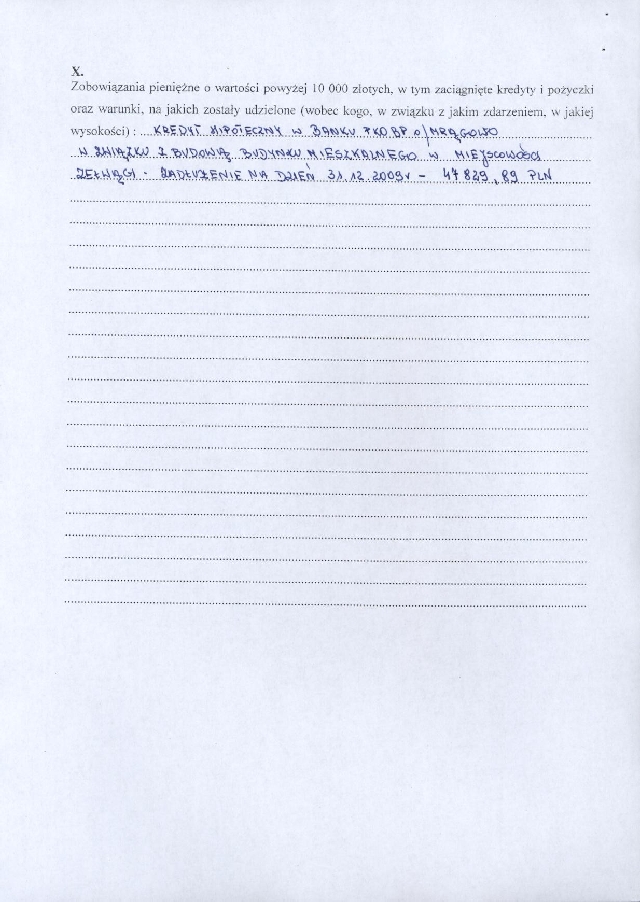 X.
Zobowiązania pieniężne o wartości powyżej 10 000 złotych, w tym zaciągnięte kredyty i pożyczki
oraz warunki, na jakich zostały udzielone (wobec kogo, w związku z jakim zdarzeniem, w jakiej
wysokości) : KREDYT HIPOTECZNY W BANKU PKO BP O/MRĄGOWO
W ZWIĄZKU Z BUDOWĄ BUDYNKU MIESZKALNEGO W MIEJSCOWOŚCI
ZEŁWĄGI - ZADŁUŻENIE NA DZIEŃ 31.12.2009r - 47 829,89 PLN